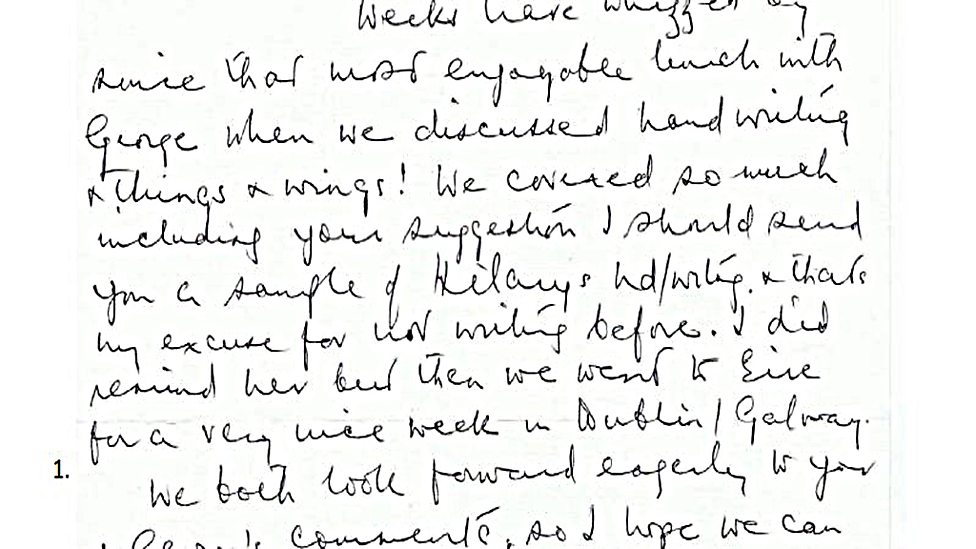 Weeks have whizzed by
since that most enjoyable lunch with
George when we discussed handwriting
& things & wings! We covered so much
including your suggestion I should send
you a sample of Hilary's hd/writig. & that's
my excuse for not writing before. I did
remind her but then we went to Eire
for a very nice week in Dublin/Galway.
1.
We both look forward eagerly to your
& George's comments, so I hope we can